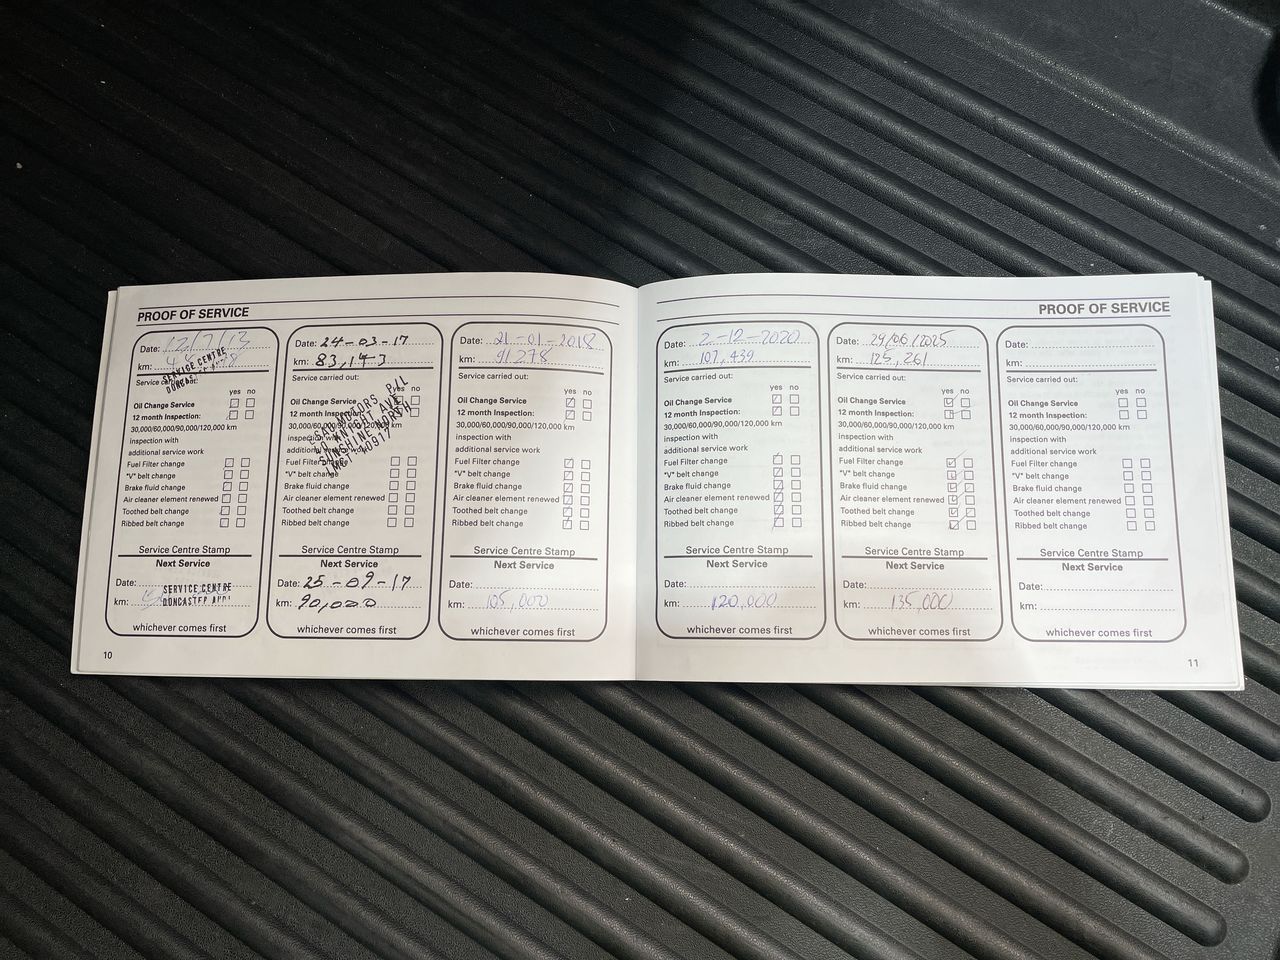 PROOF OF SERVICE
Date: 12/7/13
km:
SERVICE CENTRE
DONCASTER AUDI
Service carried out:
yes no
Oil Change Service
12 month Inspection:
30,000/60,000/90,000/120,000 km
inspection with
additional service work
Fuel Filter change
"V" belt change
Brake fluid change
Air cleaner element renewed
Toothed belt change
Ribbed belt change
Service Centre Stamp
Next Service
Date:
SERVICE CENTRE
km:
DONCASTER AUDI
whichever comes first
Date: 24-03-17
km: 83,143
Service carried out:
yes no
Oil Change Service
12 month Inspection:
30,000/60,000/90,000/120,000 km
MOTORS P/L
AVE
SUNSHINE NORTH
inspection with
additional service work
Fuel Filter change
"V" belt change
Brake fluid change
Air cleaner element renewed
Toothed belt change
Ribbed belt change
Service Centre Stamp
Next Service
Date: 25-09-17
km: 90,000
whichever comes first
Date: 21-01-2018
km: 91278
Service carried out:
yes no
Oil Change Service
12 month Inspection:
30,000/60,000/90,000/120,000 km
inspection with
additional service work
Fuel Filter change
"V" belt change
Brake fluid change
Air cleaner element renewed
Toothed belt change
Ribbed belt change
Service Centre Stamp
Next Service
Date:
km: 105,000
whichever comes first
10
PROOF OF SERVICE
Date: 2-12-2020
km: 107,439
Service carried out:
yes no
Oil Change Service
12 month Inspection:
30,000/60,000/90,000/120,000 km
inspection with
additional service work
Fuel Filter change
"V" belt change
Brake fluid change
Air cleaner element renewed
Toothed belt change
Ribbed belt change
Service Centre Stamp
Next Service
Date:
km: 120,000
whichever comes first
Date: 29/06/2025
km: 125,261
Service carried out:
yes no
Oil Change Service
12 month Inspection:
30,000/60,000/90,000/120,000 km
inspection with
additional service work
Fuel Filter change
"V" belt change
Brake fluid change
Air cleaner element renewed
Toothed belt change
Ribbed belt change
Service Centre Stamp
Next Service
Date:
km: 135,000
whichever comes first
Date:
km:
Service carried out:
yes no
Oil Change Service
12 month Inspection:
30,000/60,000/90,000/120,000 km
inspection with
additional service work
Fuel Filter change
"V" belt change
Brake fluid change
Air cleaner element renewed
Toothed belt change
Ribbed belt change
Service Centre Stamp
Next Service
Date:
km:
whichever comes first
11